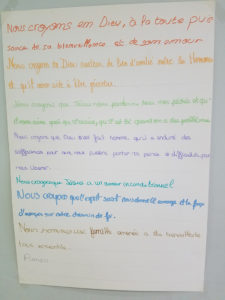 Nous croyons en Dieu, à la toute puis
sance de sa bienveillance et de son amour
Nous croyons en Dieu, de lien d'amitié entre les Hommes
et qu'il nous aide à être
Nous croyons que Jésus nous pardonne tous nos péchés et qu'
il nous aime quoi qu'il arrive, qu'il est là quand on a des problèmes
Nous croyons que Dieu s'est fait homme, qu'il a enduré des
souffrances pour que nous puissions porter la parole et
Nous croyons que Jésus a un amour inconditionnel
Nous croyons que l'esprit saint nous donne le courage et la force
d'avancer sur notre chemin de foi.
Nous famille amenée à travailler
tous ensemble